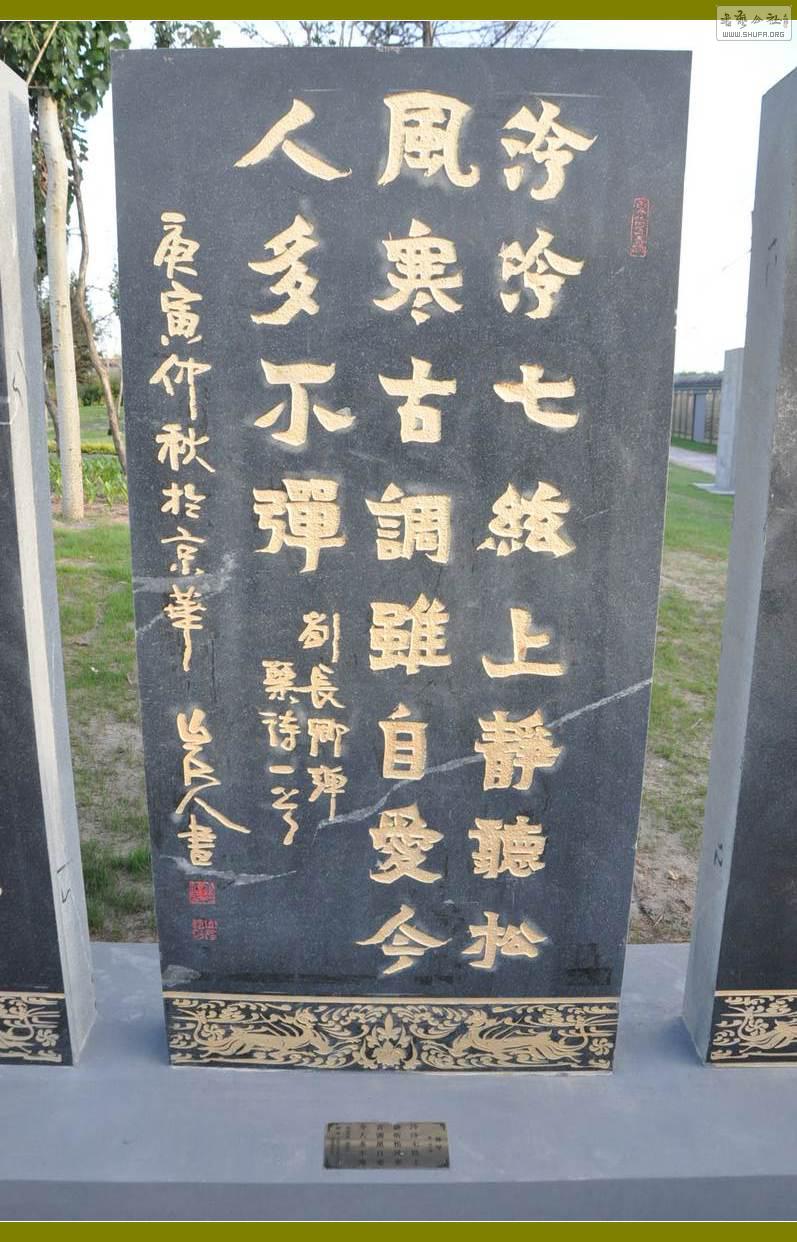 泠泠七絃上靜聽松
風寒古調雖自愛今
人多不彈
劉長卿彈
琴詩一首
庚寅仲秋於京華
山民人書
WWW.SHUFA.ORG